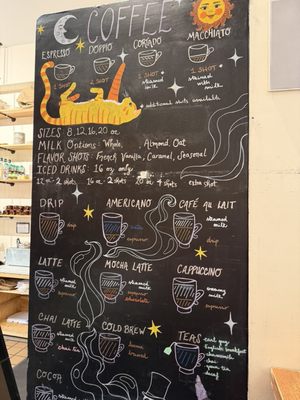 COFFEE
ESPRESSO DOPPIO CORTADO MACCHIATO
1 SHOT 2 SHOT 1 SHOT 1 SHOT
steamed milk
* additional shots available
SIZES: 8, 12, 16, 20 oz
MILK Options: Whole, Almond, Oat
FLAVOR SHOTS: French Vanilla, Caramel, Seasonal
ICED DRINKS: 16 oz only
12 oz - 2 shots 16 oz - 2 shots 20 oz 4 shots extra shot
DRIP AMERICANO CAFÉ AU LAIT
drip
espresso
steamed milk
drip
LATTE MOCHA LATTE CAPPUCCINO
steamed milk
espresso
steamed milk
espresso
chocolate
milk
espresso
CHAI LATTE COLD BREW TEAS
steamed milk
chai tea
earl grey
English breakfast
chamomile
chai
COCOA